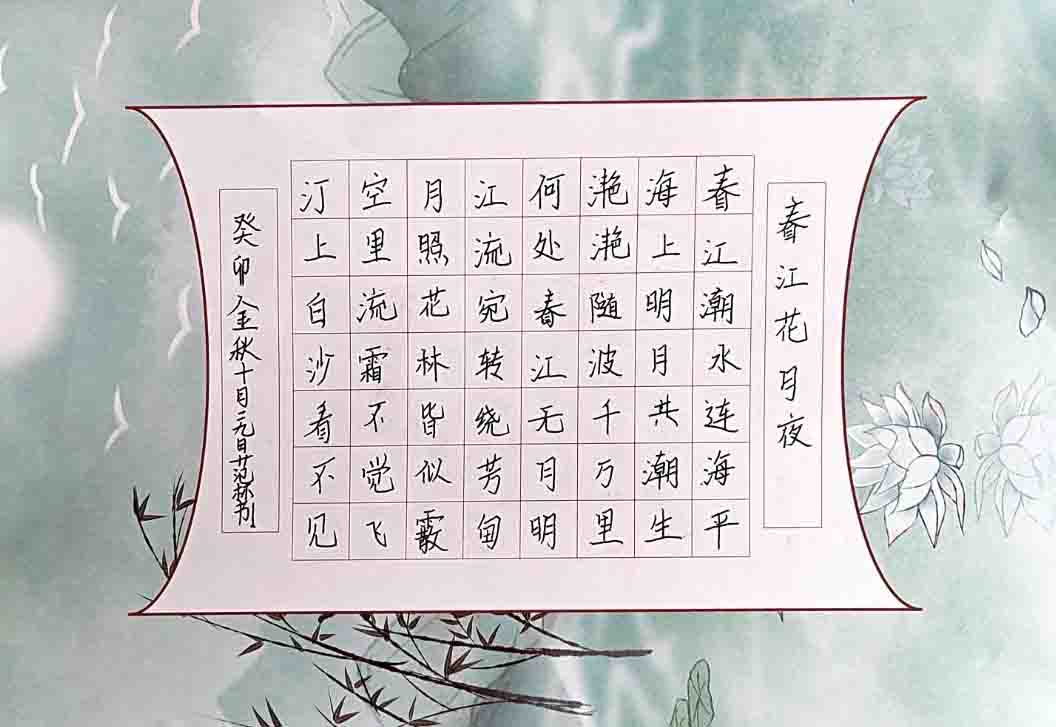 春江花月夜
春江潮水连海平
海上明月共潮生
滟滟随波千万里
何处春江无月明
江流宛转绕芳甸
月照花林皆似霰
空里流霜不觉飞
汀上白沙看不见
癸卯金秋十月元日范林书